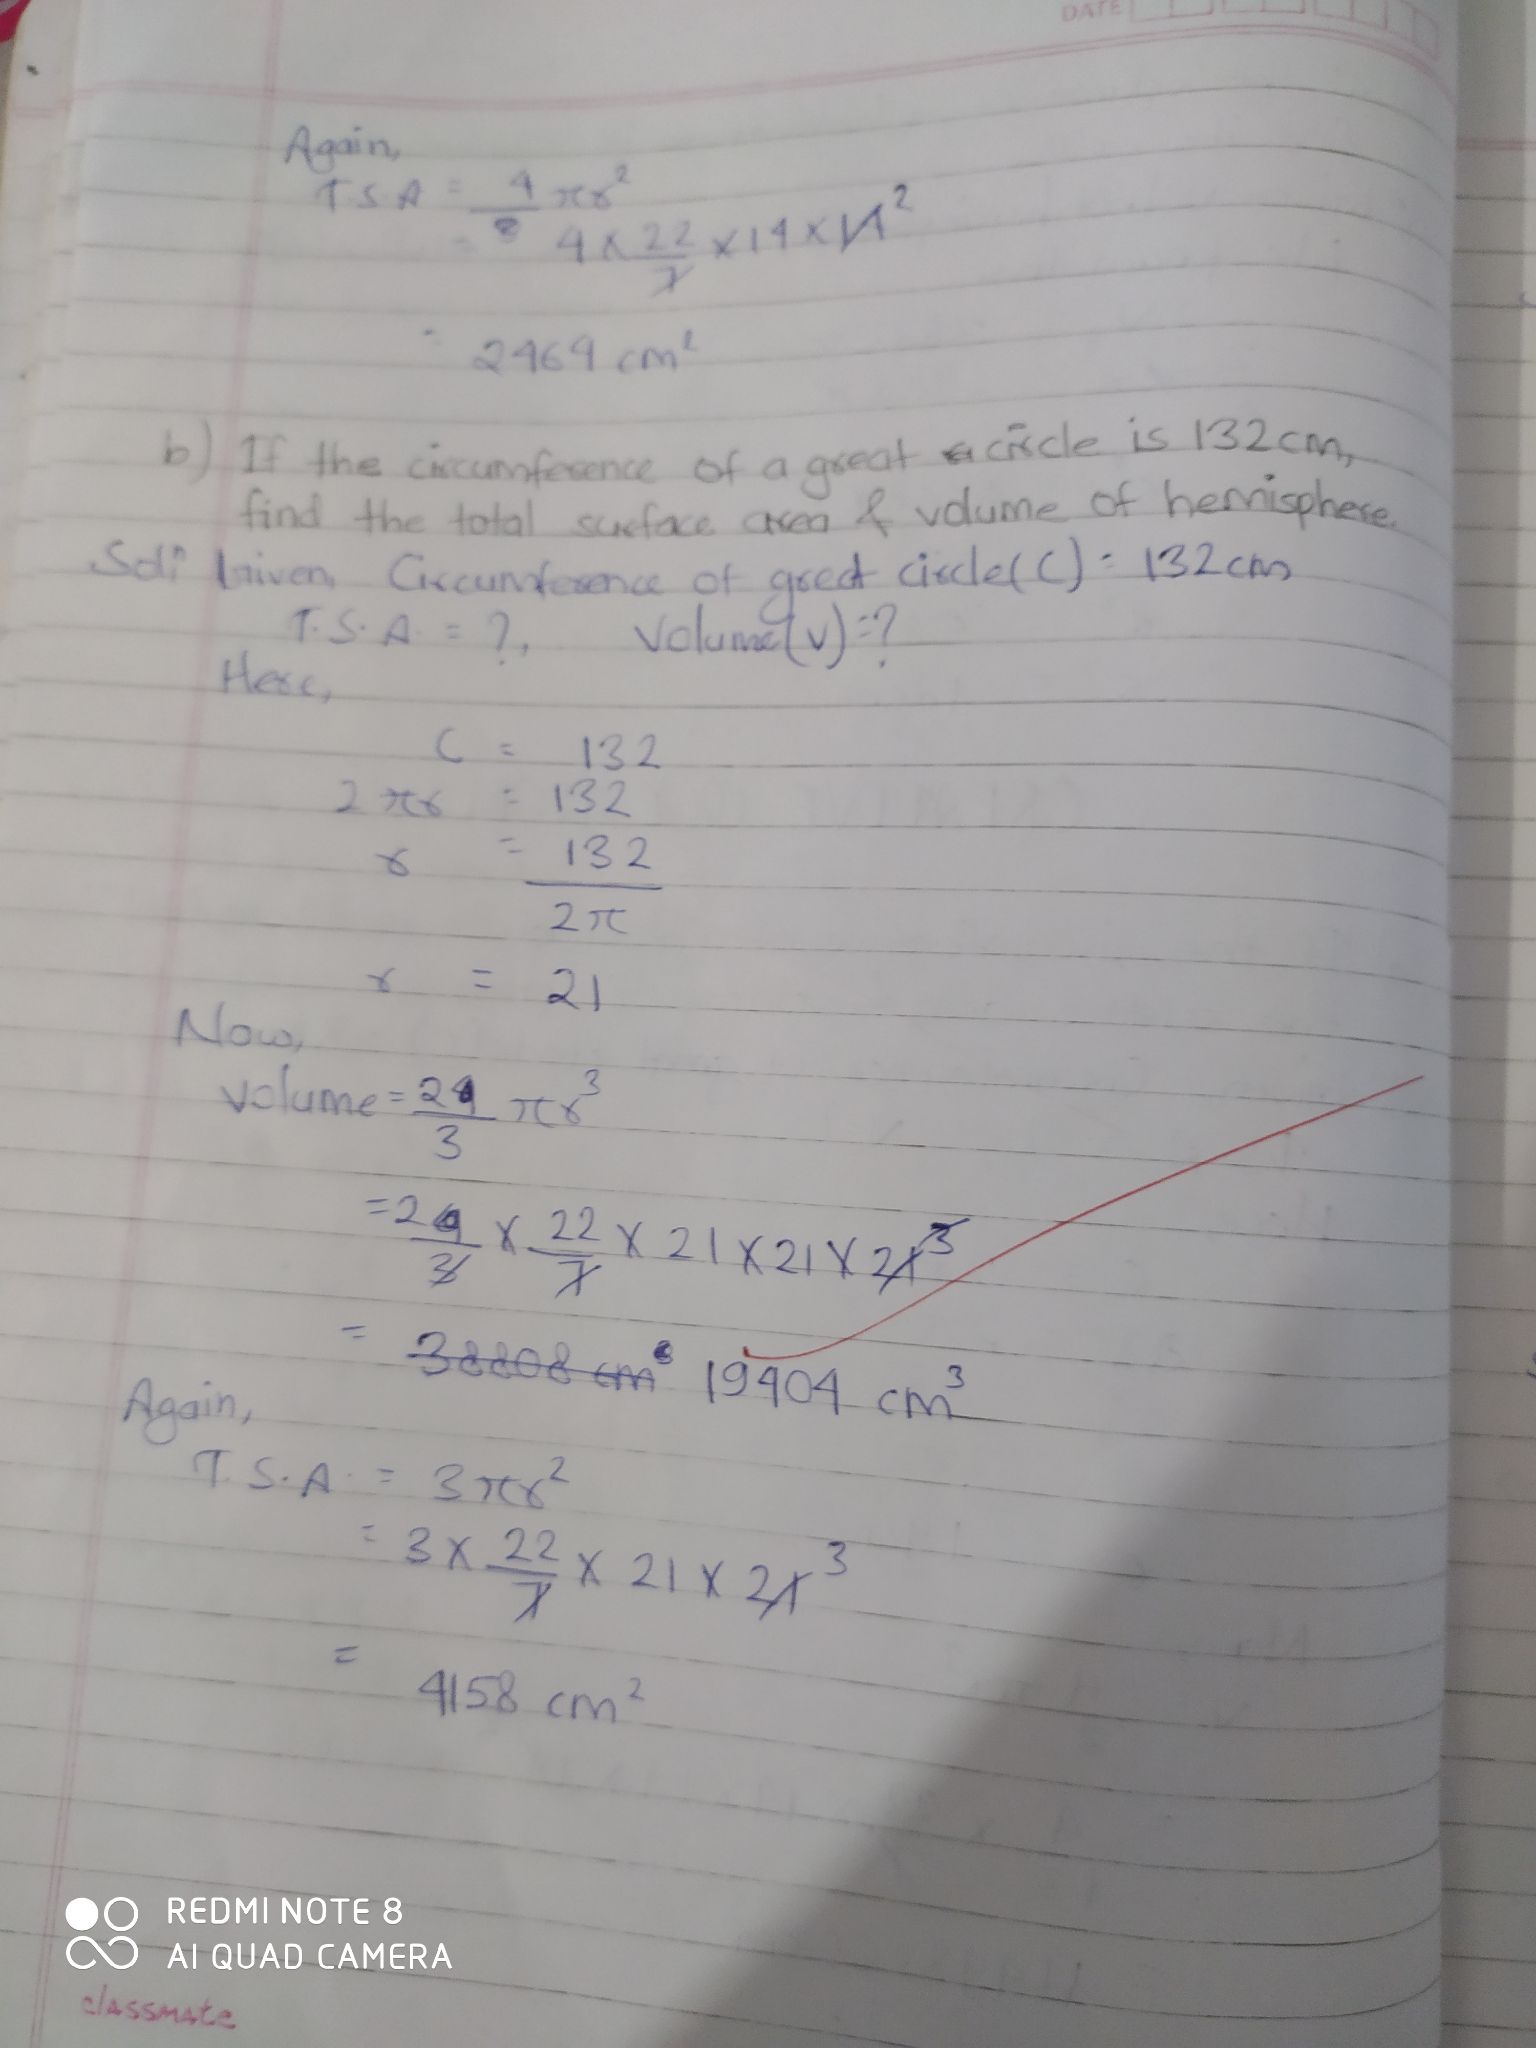 DATE
Again,
T.S.A = 4 πr²
= 4 × 22/7 × 14 × 14 2
= 2464 cm²
b) If the circumference of a great circle is 132cm,
find the total surface area & volume of hemisphere.
Sol: Given, Circumference of great circle(C) = 132cm
T.S.A. = ?, Volume(v) = ?
Here,
C = 132
2πr = 132
r = 132/2π
r = 21
Now,
volume = 2/3 πr³
= 2/3 × 22/7 × 21 × 21 × 21 3
= 38808 cm³ 19404 cm³
Again,
T.S.A. = 3πr²
= 3 × 22/7 × 21 × 21 3
= 4158 cm²
REDMI NOTE 8
AI QUAD CAMERA
classmate